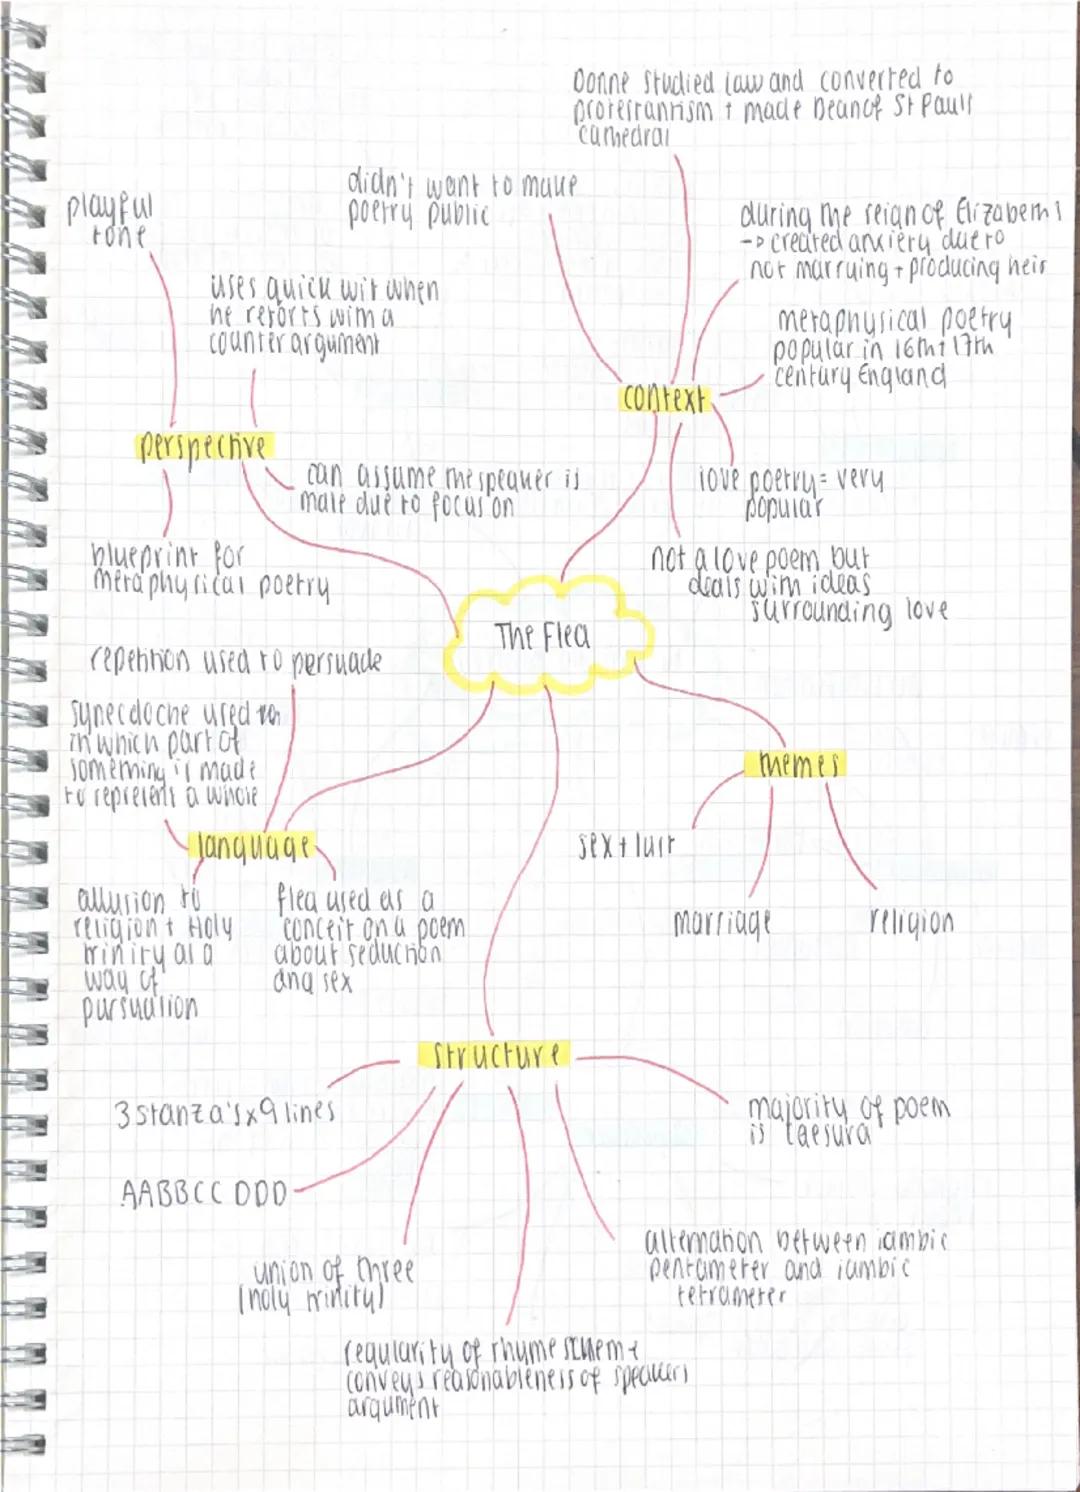 Donne studied law and converted to
protestantism + made Dean of St Pauls
cathedral
didn't want to make
poetry public
playful
tone
during the reign of Elizabeth I
-> created anxiety due to
not marrying + producing heir
uses quick wit when
he retorts with a
counter argument
metaphysical poetry
popular in 16th + 17th
century England
context
perspective
can assume the speaker is
male due to focus on
love poetry = very
popular
blueprint for
metaphysical poetry
not a love poem but
deals with ideas
surrounding love
The Flea
repetition used to persuade
synecdoche used
in which part of
something is made
to represent a whole
themes
language
sex + lust
marriage
religion
allusion to
religion + Holy
trinity as a
way of
pursuation
flea used as a
conceit on a poem
about seduction
and sex
structure
3 stanza's x 9 lines
majority of poem
is caesura
AABBCC DDD
union of three
(holy trinity)
alternation between iambic
pentameter and iambic
tetrameter
regularity of rhyme scheme
conveys reasonableness of speakers
argument